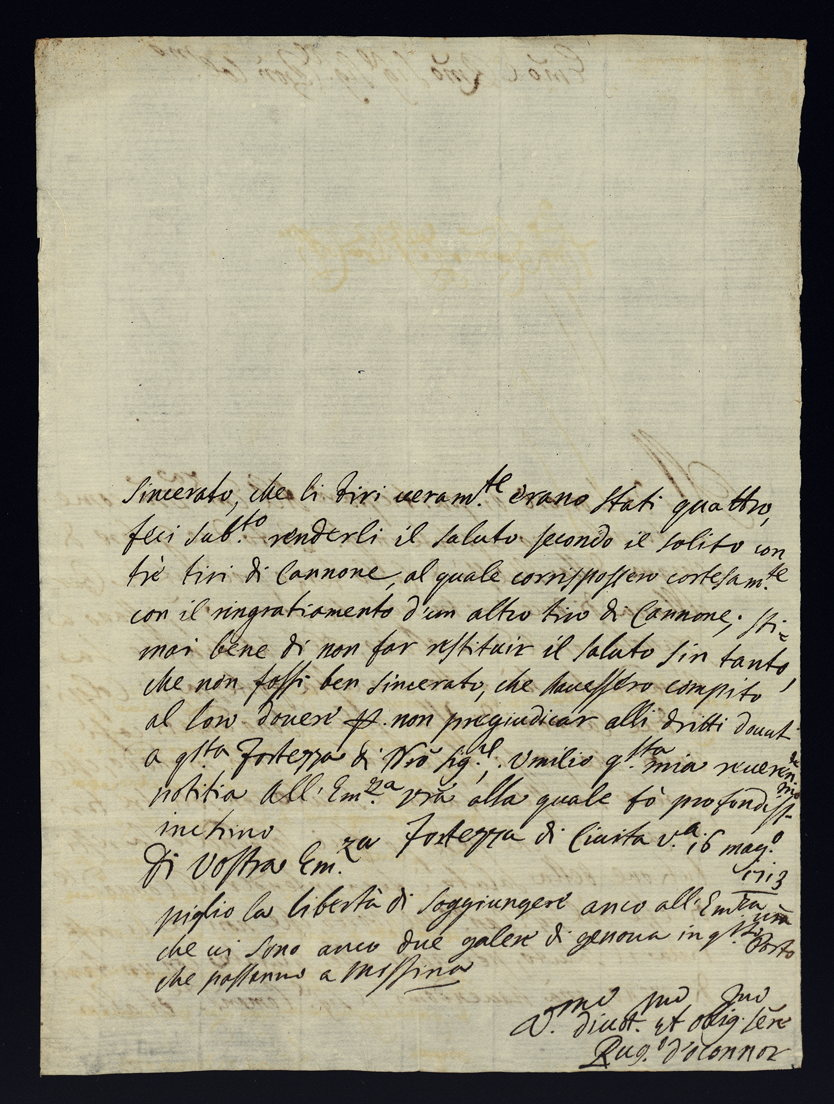 sincerato, che li tiri veram.te erano stati quattro,
feci sub.to renderli il saluto secondo il solito con
trè tiri di Cannone, al quale corrispossero cortesam.te
con il ringratiamento d'un altro tiro di Cannone; sti=
mai bene di non far restituir il saluto sin tanto,
che non fossi ben sincerato, che havessero compito
al loro dovere non pregiudicar alli dritti dovuti
a q.sta Fortezza di Nrō Sig.re. Umilio q.sta mia reveren.de
notitia all'Em.za Vrā alla quale fò profondiss.mo
inchino
Di Vostra Em.za Fortezza di Civita V.a 16 mag.o
1713
piglio la libertà di soggiungere anco all'Em.za vrā
che vi sono anco due galere di genova in q.sto Porto
che passanno a Messina
V.mo div.mo et oblig.mo serre
Rug.o d'oconnor